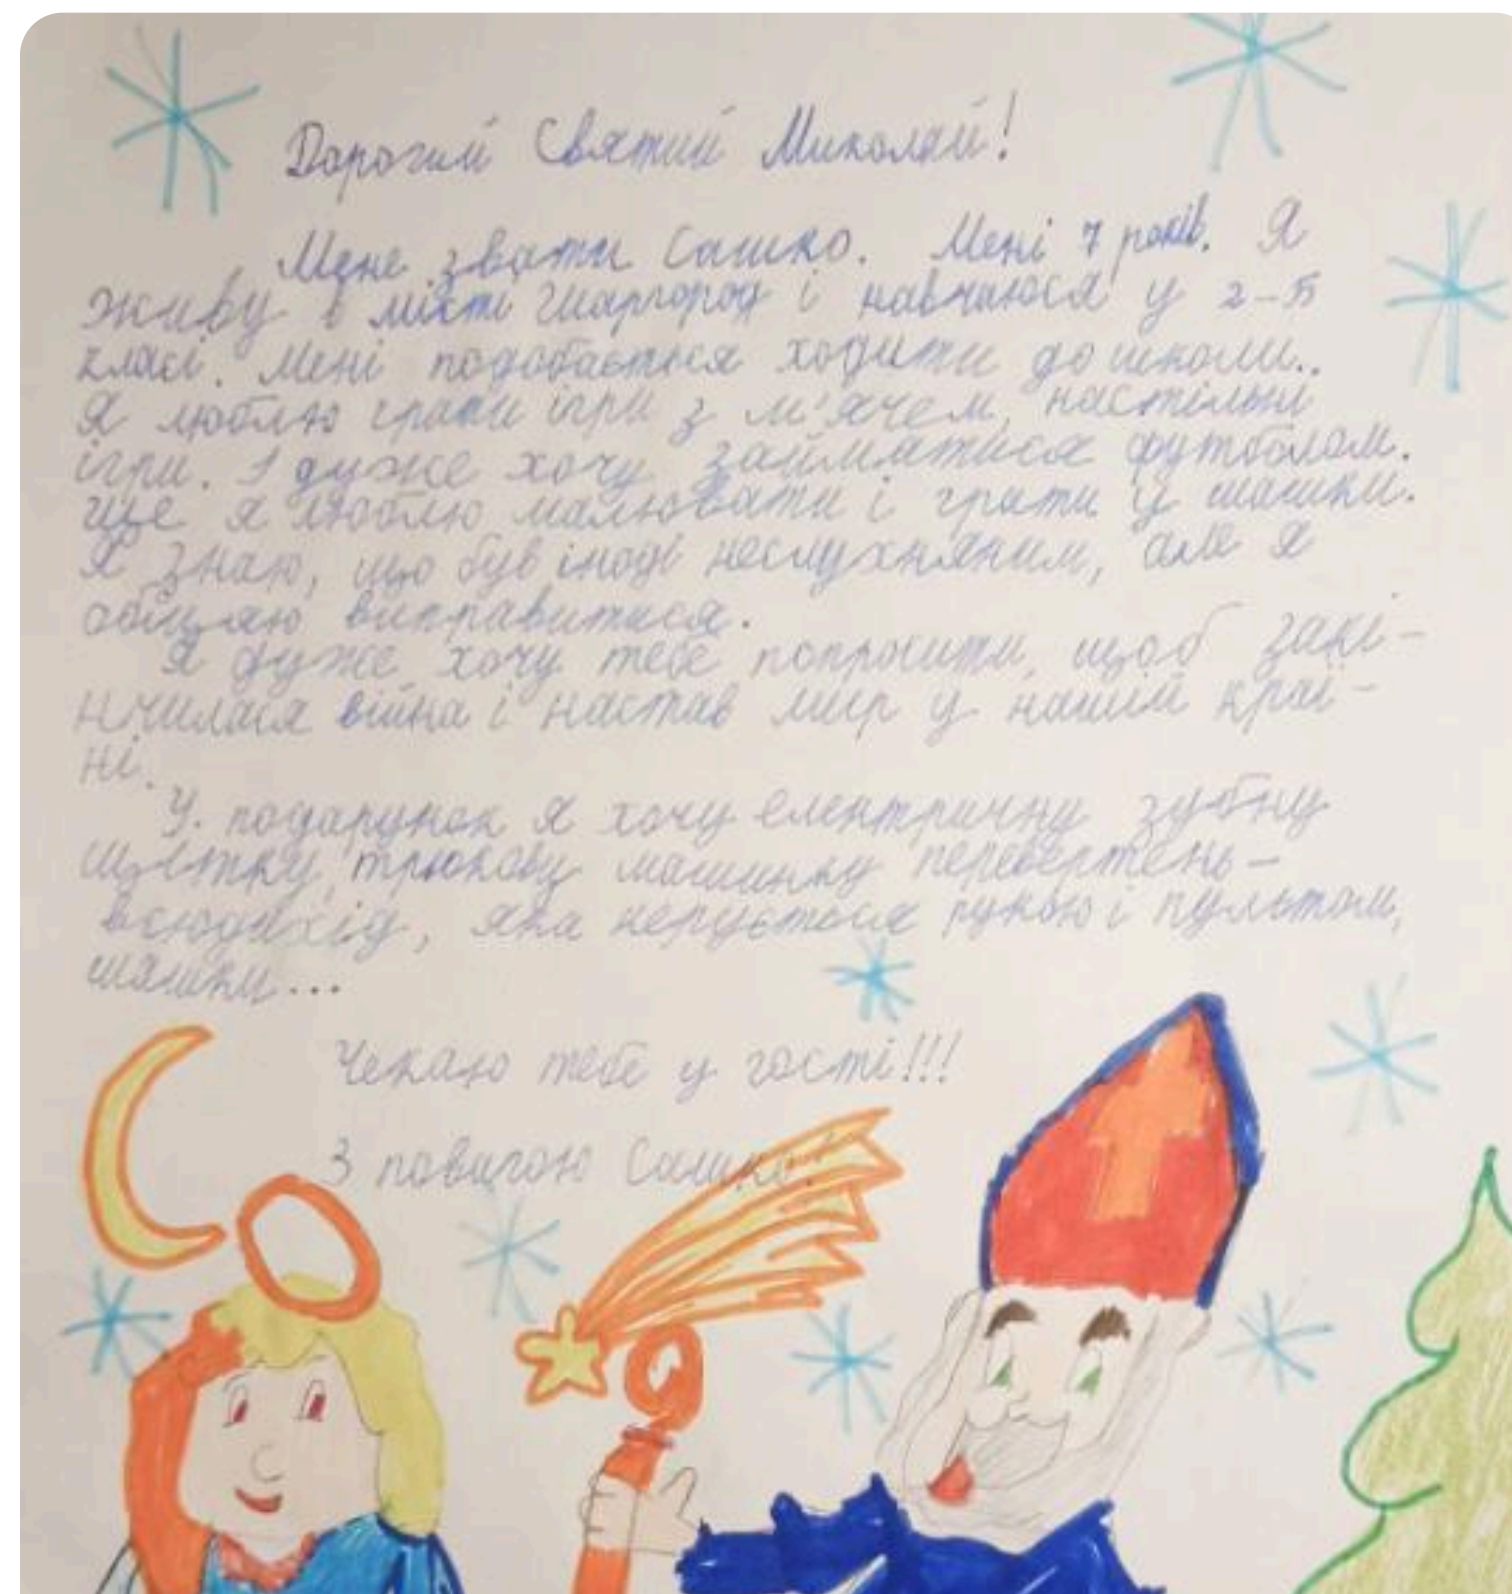 Дорогий Святий Миколай!
Мене звати Сашко. Мені 7 років. Я
живу в місті Шаргород і навчаюся у 2-Б
класі. Мені подобається ходити до школи..
Я люблю грати ігри з м'ячем, настільні
ігри. І дуже хочу займатися футболом.
Ще я люблю малювати і грати у шашки.
Я знаю, що був іноді неслухняним, але я
обіцяю виправитися.
Я дуже хочу тебе попросити, щоб закі-
нчилася війна і настав мир у нашій краї-
ні.
У подарунок я хочу електричну зубну
щітку, трюкову машинку перевертень-
всюдихід, яка керується рукою і пультом,
шашки...
Чекаю тебе у гості!!!
З повагою Сашко!